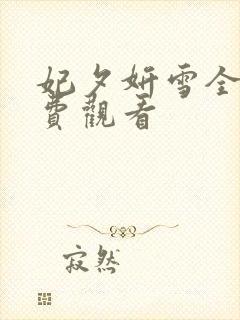 妃夕妍雪全
費觀看
寂然